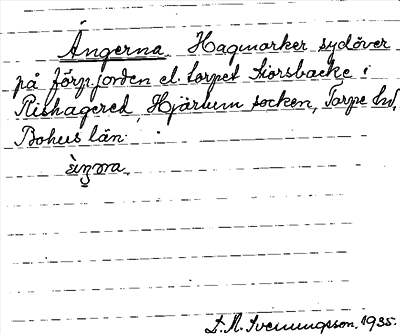 Ängerna. Hagmarker sydöver
på förpjorden el. torpet Storsbacke i
Rishagered, Hjärtum socken, Torpe hd,
Bohus län.
L. A. Svenungsson. 1935.